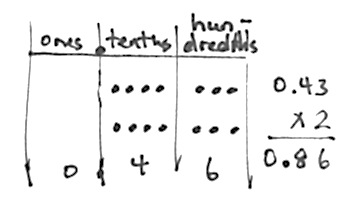 ones . tenths hun-
dredths
0.43
x2
0 4 6 0.86